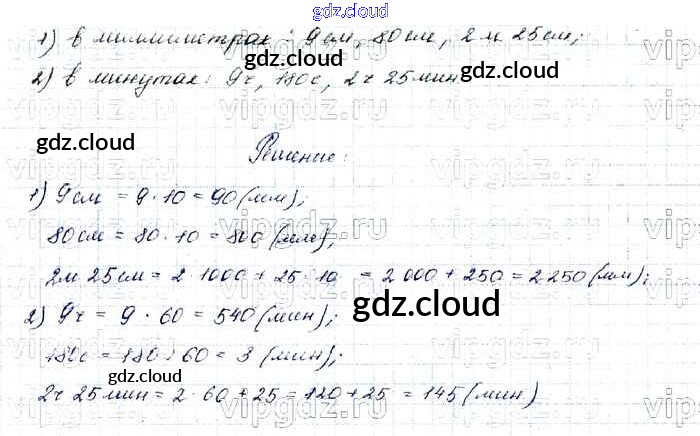 gdz.cloud
1) в миллиметрах: 9 см, 80 см, 2 м 25 см;
2) в минутах: 9 ч, 180 с, 2 ч 25 мин
gdz.cloud
gdz.cloud
gdz.cloud
Решение:
1) 9 см = 9 · 10 = 90 (мм);
gdz.cloud
80 см = 80 · 10 = 800 (мм);
2 м 25 см = 2 · 1000 + 25 · 10 = 2 000 + 250 = 2 250 (мм);
gdz.cloud
gdz.cloud
2) 9 ч = 9 · 60 = 540 (мин);
180 с = 180 : 60 = 3 (мин);
gdz.cloud
2 ч 25 мин = 2 · 60 + 25 = 120 + 25 = 145 (мин)